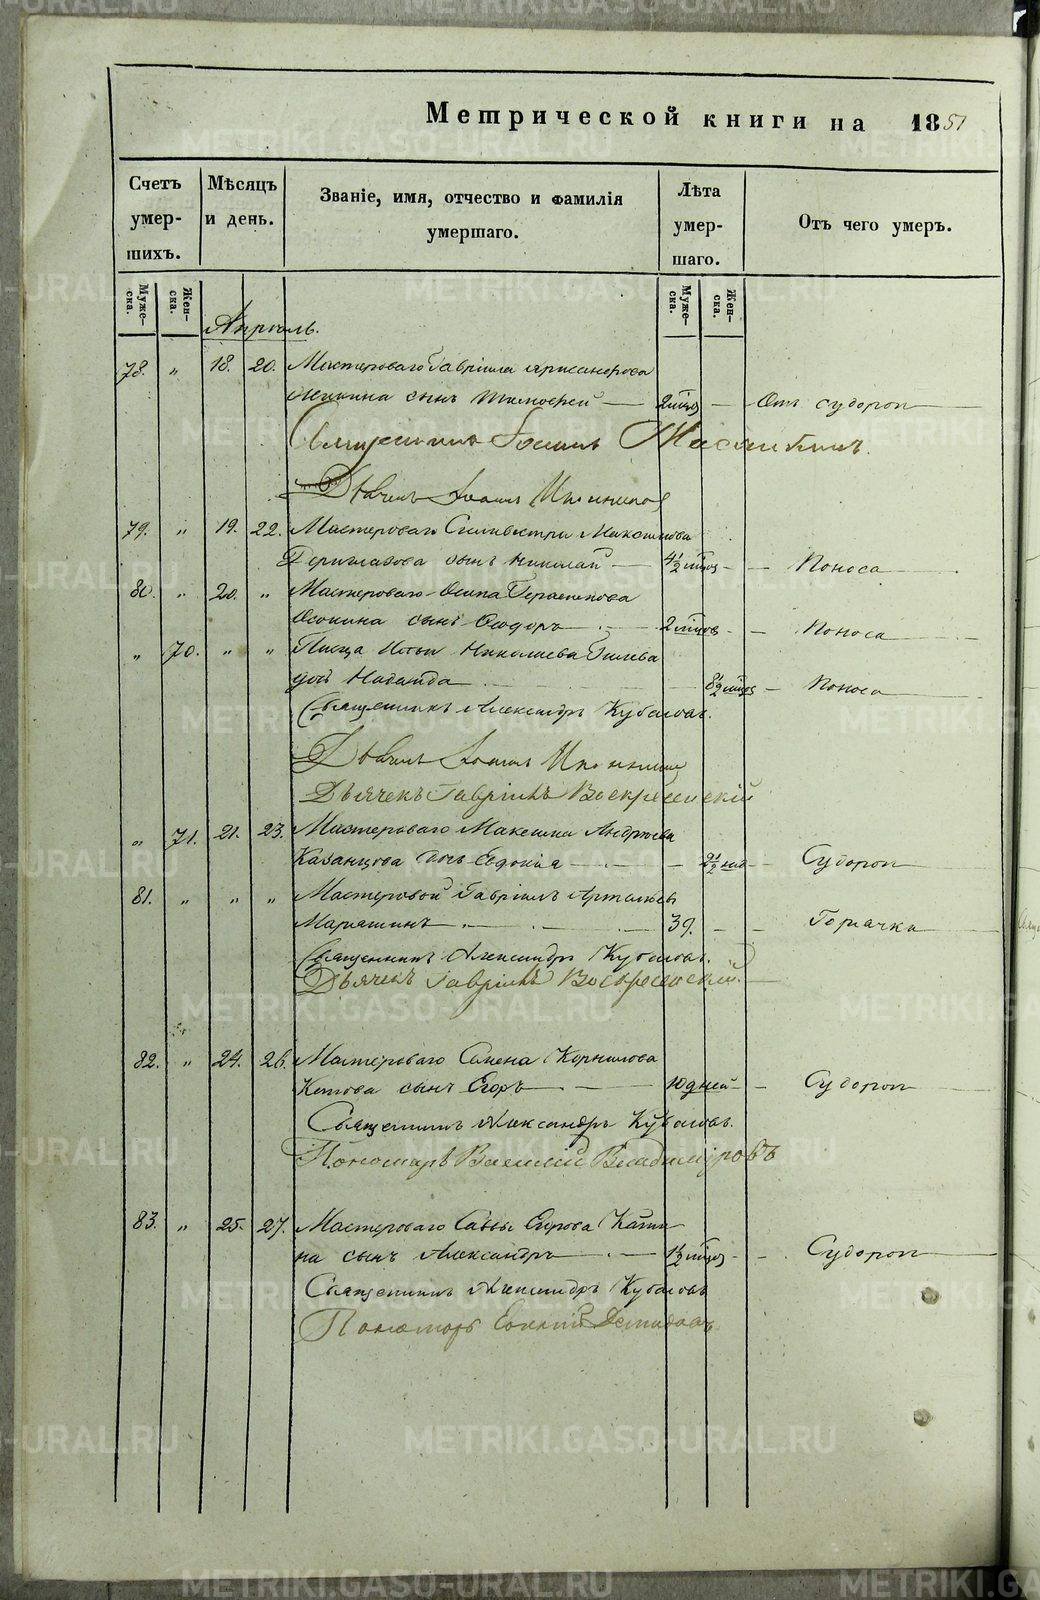 Метрической книги на 1851
Счетъ умершихъ.
Мѣсяцъ и день.
Званіе, имя, отчество и фамилія умершаго.
Лѣта умершаго.
Отъ чего умеръ.
Мужеска.
Женска.
Мужеска.
Женска.
Апрѣль.
78. „ 18. 20. Мастероваго Гавріила
сынъ Тимофей 2 мцов Отъ судорог
Священникъ Іоаннъ
Дьяконъ Іоаннъ
79. „ 19. 22. Мастероваго Сильвестра Максимова
сынъ Николай 4½ мцов Поноса
80. „ 20. „ Мастероваго Осипа Герасимова
сынъ Ѳеодоръ 2 мцов Поноса
„ 70. „ „ Николаева
дочь Надежда 8½ мцов Поноса
Священникъ Александръ
Дьяконъ Іоаннъ
Дьячекъ Гавріилъ Воскресенскій
„ 71. 21. 23. Мастероваго Максима Андреева
Казанцова дочь Евдокія 2½ нед Судорог
81. „ „ „ Мастеровой Гавріилъ
39. Горячка
Священникъ Александръ
Дьячекъ Гавріилъ Воскресенскій
82. „ 24. 26. Мастероваго Семена Корнилова
Китова сынъ Егоръ 10 дней Судорог
Священникъ Александръ
Пономарь Василій Владиміровъ
83. „ 25. 27. Мастероваго Саввы Егорова
на сынъ Александръ 1½ мцов Судорог
Священникъ Александръ
Пономарь
METRIKI.GASO-URAL.RU